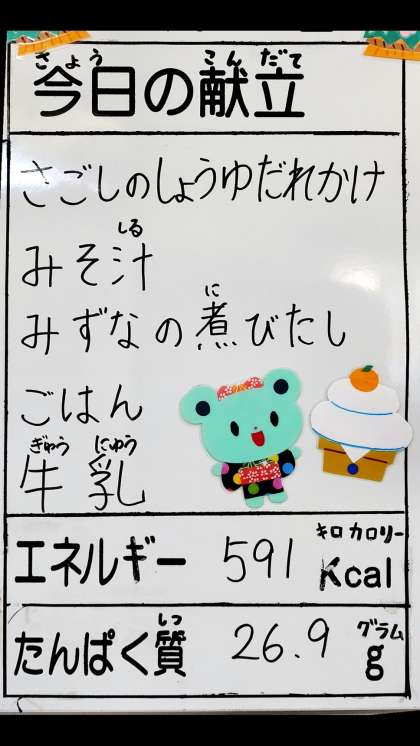 きょう こんだて
今日の献立
さごしのしょうゆだれかけ
しる
みそ汁
に
みずなの煮びたし
ごはん
ぎゅう にゅう
牛乳
キロカロリー
エネルギー 591 Kcal
しつ グラム
たんぱく質 26.9 g